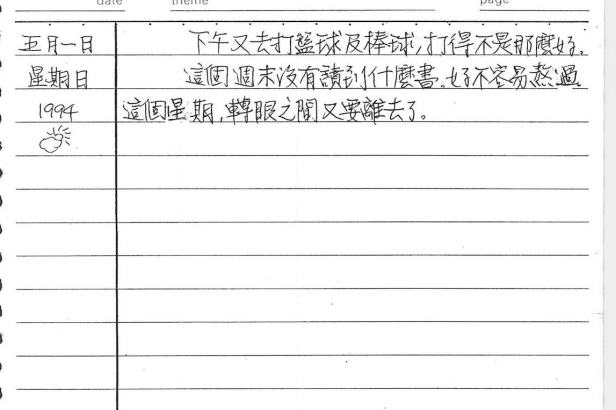 date theme page
五月一日
星期日
1994
下午又去打籃球及棒球,打得不是那麼好。
這個週末沒有讀到什麼書。好不容易熬過
這個星期,轉眼之間又要離去了。